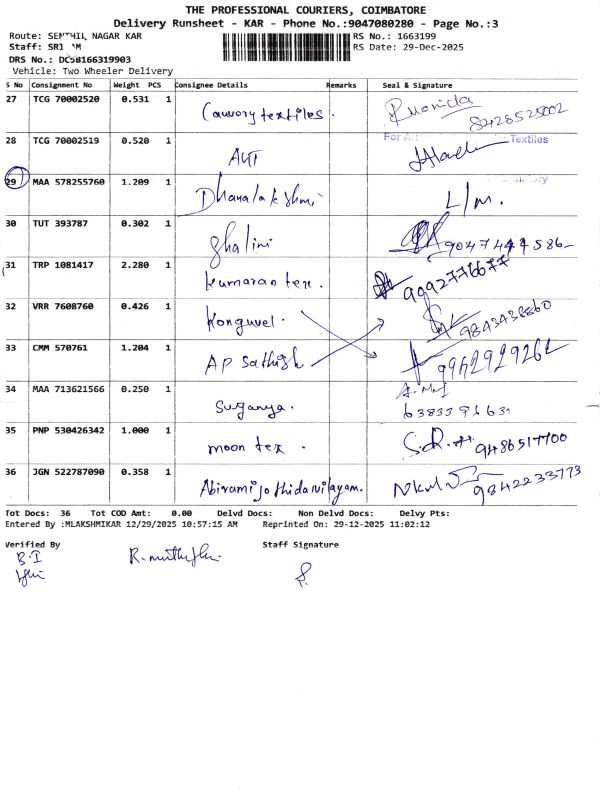 THE PROFESSIONAL COURIERS, COIMBATORE
Delivery Runsheet - KAR - Phone No.:9047080280 - Page No.:3
Route: SENTHIL NAGAR KAR
RS No.: 1663199
Staff: SRI
RS Date: 29-Dec-2025
DRS No.: DCSB166319903
Vehicle: Two Wheeler Delivery
S No Consignment No Weight PCS Consignee Details Remarks Seal & Signature
27 TCG 70002520 0.531 1 Cauvory textiles. 8428525002
28 TCG 70002519 0.520 1 Textiles
29 MAA 578255760 1.209 1 Dhanalakshmi
30 TUT 393787 0.302 1 Shalini
31 TRP 1081417 2.280 1 kumaran tex. 9092776677
32 VRR 7608760 0.426 1 Konguvel. 9843438860
33 CMM 570761 1.204 1 AP Sathish
34 MAA 713621566 0.250 1 Suganya.
35 PNP 530426342 1.000 1 moon tex. 9486517700
36 JGN 522787090 0.358 1 Abirami jothidanilayam. 9842233773
Tot Docs: 36 Tot COD Amt: 0.00 Delvd Docs: Non Delvd Docs: Delvy Pts:
Entered By :MLAKSHMIKAR 12/29/2025 10:57:15 AM Reprinted On: 29-12-2025 11:02:12
Verified By Staff Signature